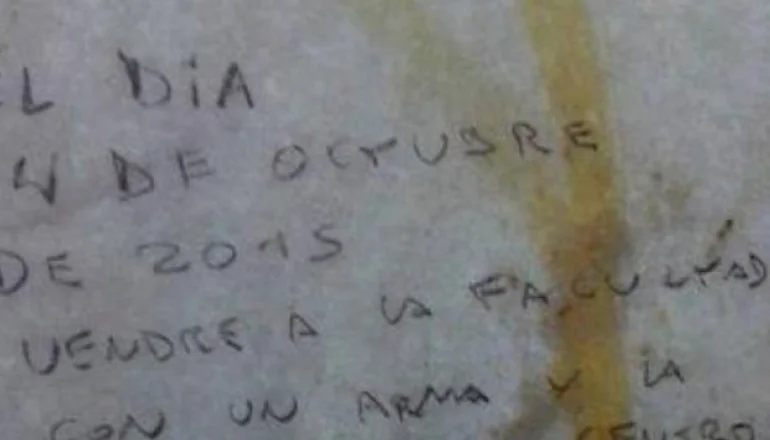 EL DiA
4 DE OCTUBRE
DE 2015
VENDRE A LA FACULTAD
CON UN ARMA Y LA